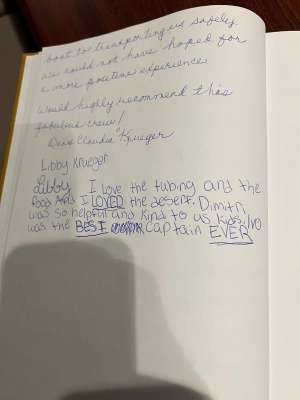 boat to transporting us safely
We could not have hoped for
a more positive experience
Would highly recommend this
fabulous crew!
Claudia Krueger
Libby Krueger
Libby I love the tubing and the
food And I LOVED the desert. Dimitri
was so helpful and kind to us kids.
was the BEST captain EVER